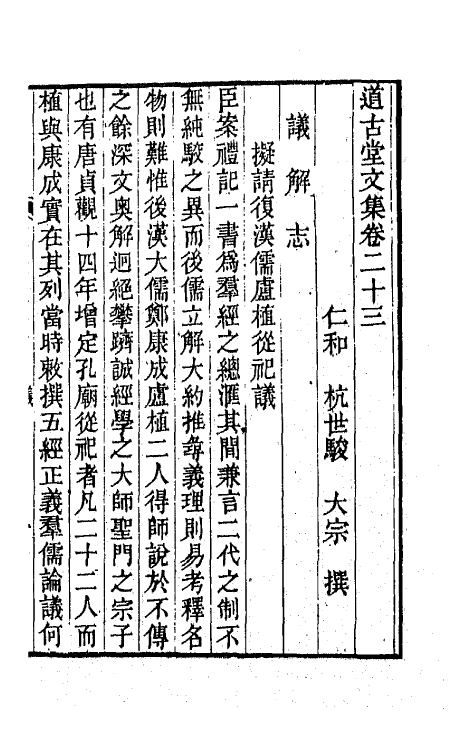 道古堂文集卷二十三
仁和 杭世駿 大宗 撰
議解志
擬請復漢儒盧植從祀議
臣案禮記一書爲羣經之總滙其間兼言二代之制不
無純駁之異而後儒立解大約推尋義理則易考釋名
物則難惟後漢大儒鄭康成盧植二人得師說於不傳
之餘深文奧解迥絕攀躋誠經學之大師聖門之宗子
也有唐貞觀十四年增定孔廟從祀者凡二十二人而
植與康成實在其列當時敕撰五經正義羣儒論議何